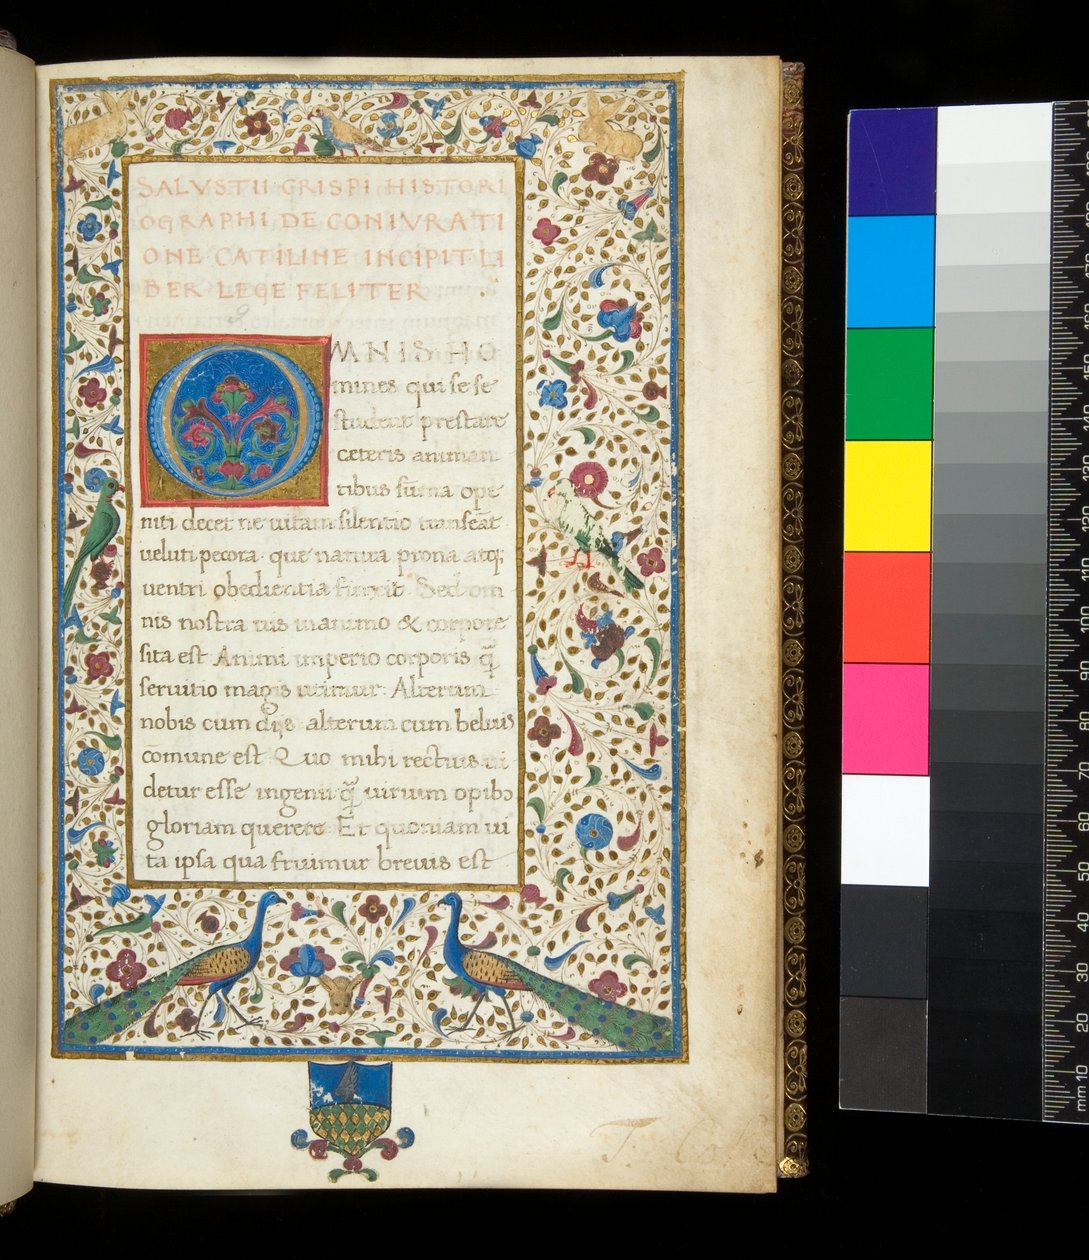 SALVSTII CRISPI HISTORI
OGRAPHI DE CONIVRATI
ONE CATILINE INCIPIT LI
BER LEGE FELITER
OMNIS HO
mines qui se se
student prestare
ceteris animan
tibus sūma ope
niti decet ne uitam silentio transeāt
ueluti pecora que natura prona atq;
uentri obedientia finxit Sed om
nis nostra uis in animo & corpore
sita est Animi imperio corporis q̄
seruitio magis utimur Alterum
nobis cum dijs alterum cum beluis
cōmune est Quo mihi rectius ui
detur esse ingenii q̄ uirium opibꝰ
gloriam querere Et quoniam ui
ta ipsa qua fruimur breuis est
mm 10 20 30 40 50 60 70 80 90 100